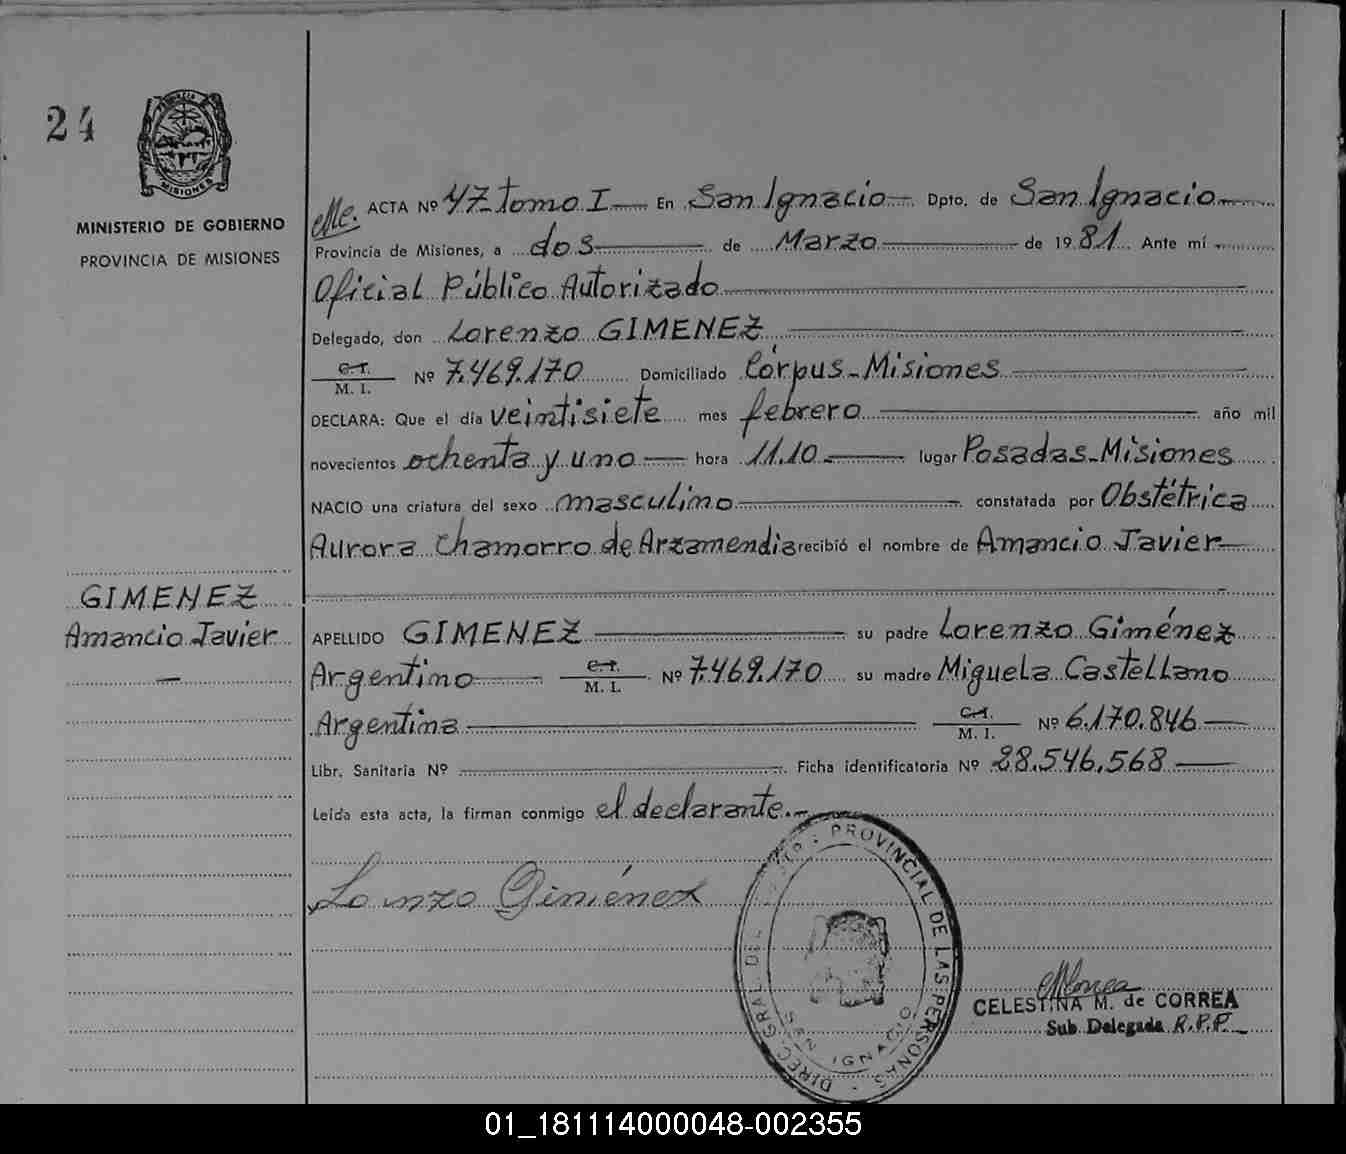 24
MISIONES
MINISTERIO DE GOBIERNO
PROVINCIA DE MISIONES
ACTA Nº 47 tomo I En San Ignacio Dpto. de San Ignacio
Provincia de Misiones, a dos de Marzo de 1981 Ante mí
Oficial Público Autorizado
Delegado, don Lorenzo GIMENEZ
C.I.
M. I. Nº 7.469.170 Domiciliado Córpus-Misiones
DECLARA: Que el día veintisiete mes febrero año mil
novecientos ochenta y uno hora 11.10 lugar Posadas-Misiones
NACIO una criatura del sexo masculino constatada por Obstétrica
Aurora Chamorro de Arzamendia recibió el nombre de Amancio Javier
GIMENEZ
Amancio Javier
APELLIDO GIMENEZ su padre Lorenzo Giménez
Argentino C.I.
M. I. Nº 7.469.170 su madre Miguela Castellano
Argentina C.I.
M. I. Nº 6.170.846
Libr. Sanitaria Nº Ficha identificatoria Nº 28.546.568
Leída esta acta, la firman conmigo el declarante.-
Lorenzo Giménez
DIREC. GRAL. DEL PROVINCIAL DE LAS PERSONAS
SAN IGNACIO
CELESTINA M. de CORREA
Sub Delegada R.P.P.
01_181114000048-002355